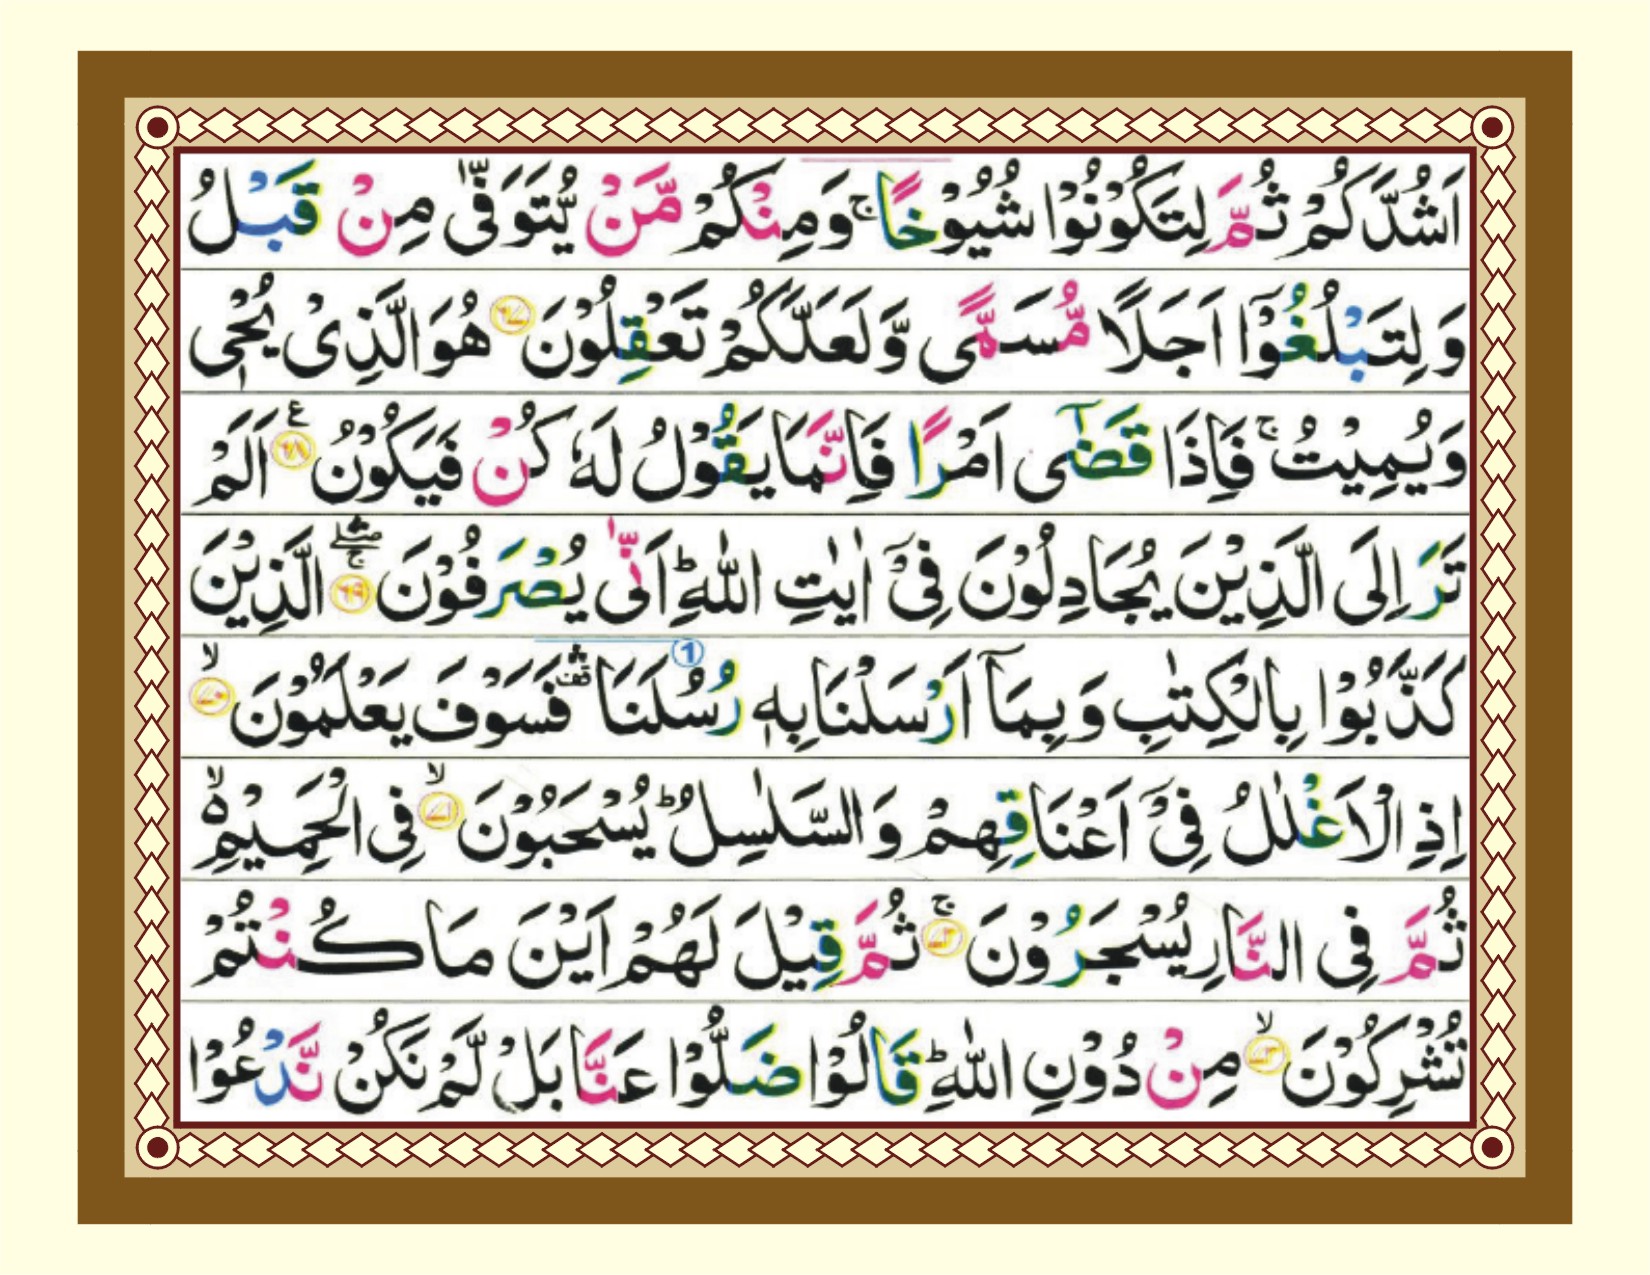 اَشُدَّكُمْ ثُمَّ لِتَكُوْنُوْا شُيُوْخًا ۚ وَمِنْكُمْ مَّنْ يُّتَوَفّٰى مِنْ قَبْلُ
وَلِتَبْلُغُوْۤا اَجَلًا مُّسَمًّى وَّلَعَلَّكُمْ تَعْقِلُوْنَ ﴿۶۷﴾ هُوَ الَّذِىْ يُحْىٖ
وَيُمِيْتُ ۚ فَاِذَا قَضٰۤى اَمْرًا فَاِنَّمَا يَقُوْلُ لَهٗ كُنْ فَيَكُوْنُ ﴿۶۸﴾ ع اَلَمْ
تَرَ اِلَى الَّذِيْنَ يُجَادِلُوْنَ فِىْۤ اٰيٰتِ اللّٰهِ ؕ اَنّٰى يُصْرَفُوْنَ ﴿۶۹﴾ ۛۚ الَّذِيْنَ
كَذَّبُوْا بِالْكِتٰبِ وَبِمَاۤ اَرْسَلْنَا بِهٖ رُسُلَنَا ۛ قف ① فَسَوْفَ يَعْلَمُوْنَ ﴿۷۰﴾ ۙ
اِذِ الْاَغْلٰلُ فِىْۤ اَعْنَاقِهِمْ وَالسَّلٰسِلُ ؕ يُسْحَبُوْنَ ﴿۷۱﴾ ۙ فِى الْحَمِيْمِ ۙ۬
ثُمَّ فِى النَّارِ يُسْجَرُوْنَ ﴿۷۲﴾ ۚ ثُمَّ قِيْلَ لَهُمْ اَيْنَ مَا كُنْتُمْ
تُشْرِكُوْنَ ﴿۷۳﴾ ۙ مِنْ دُوْنِ اللّٰهِ ؕ قَالُوْا ضَلُّوْا عَنَّا بَلْ لَّمْ نَكُنْ نَّدْعُوْا